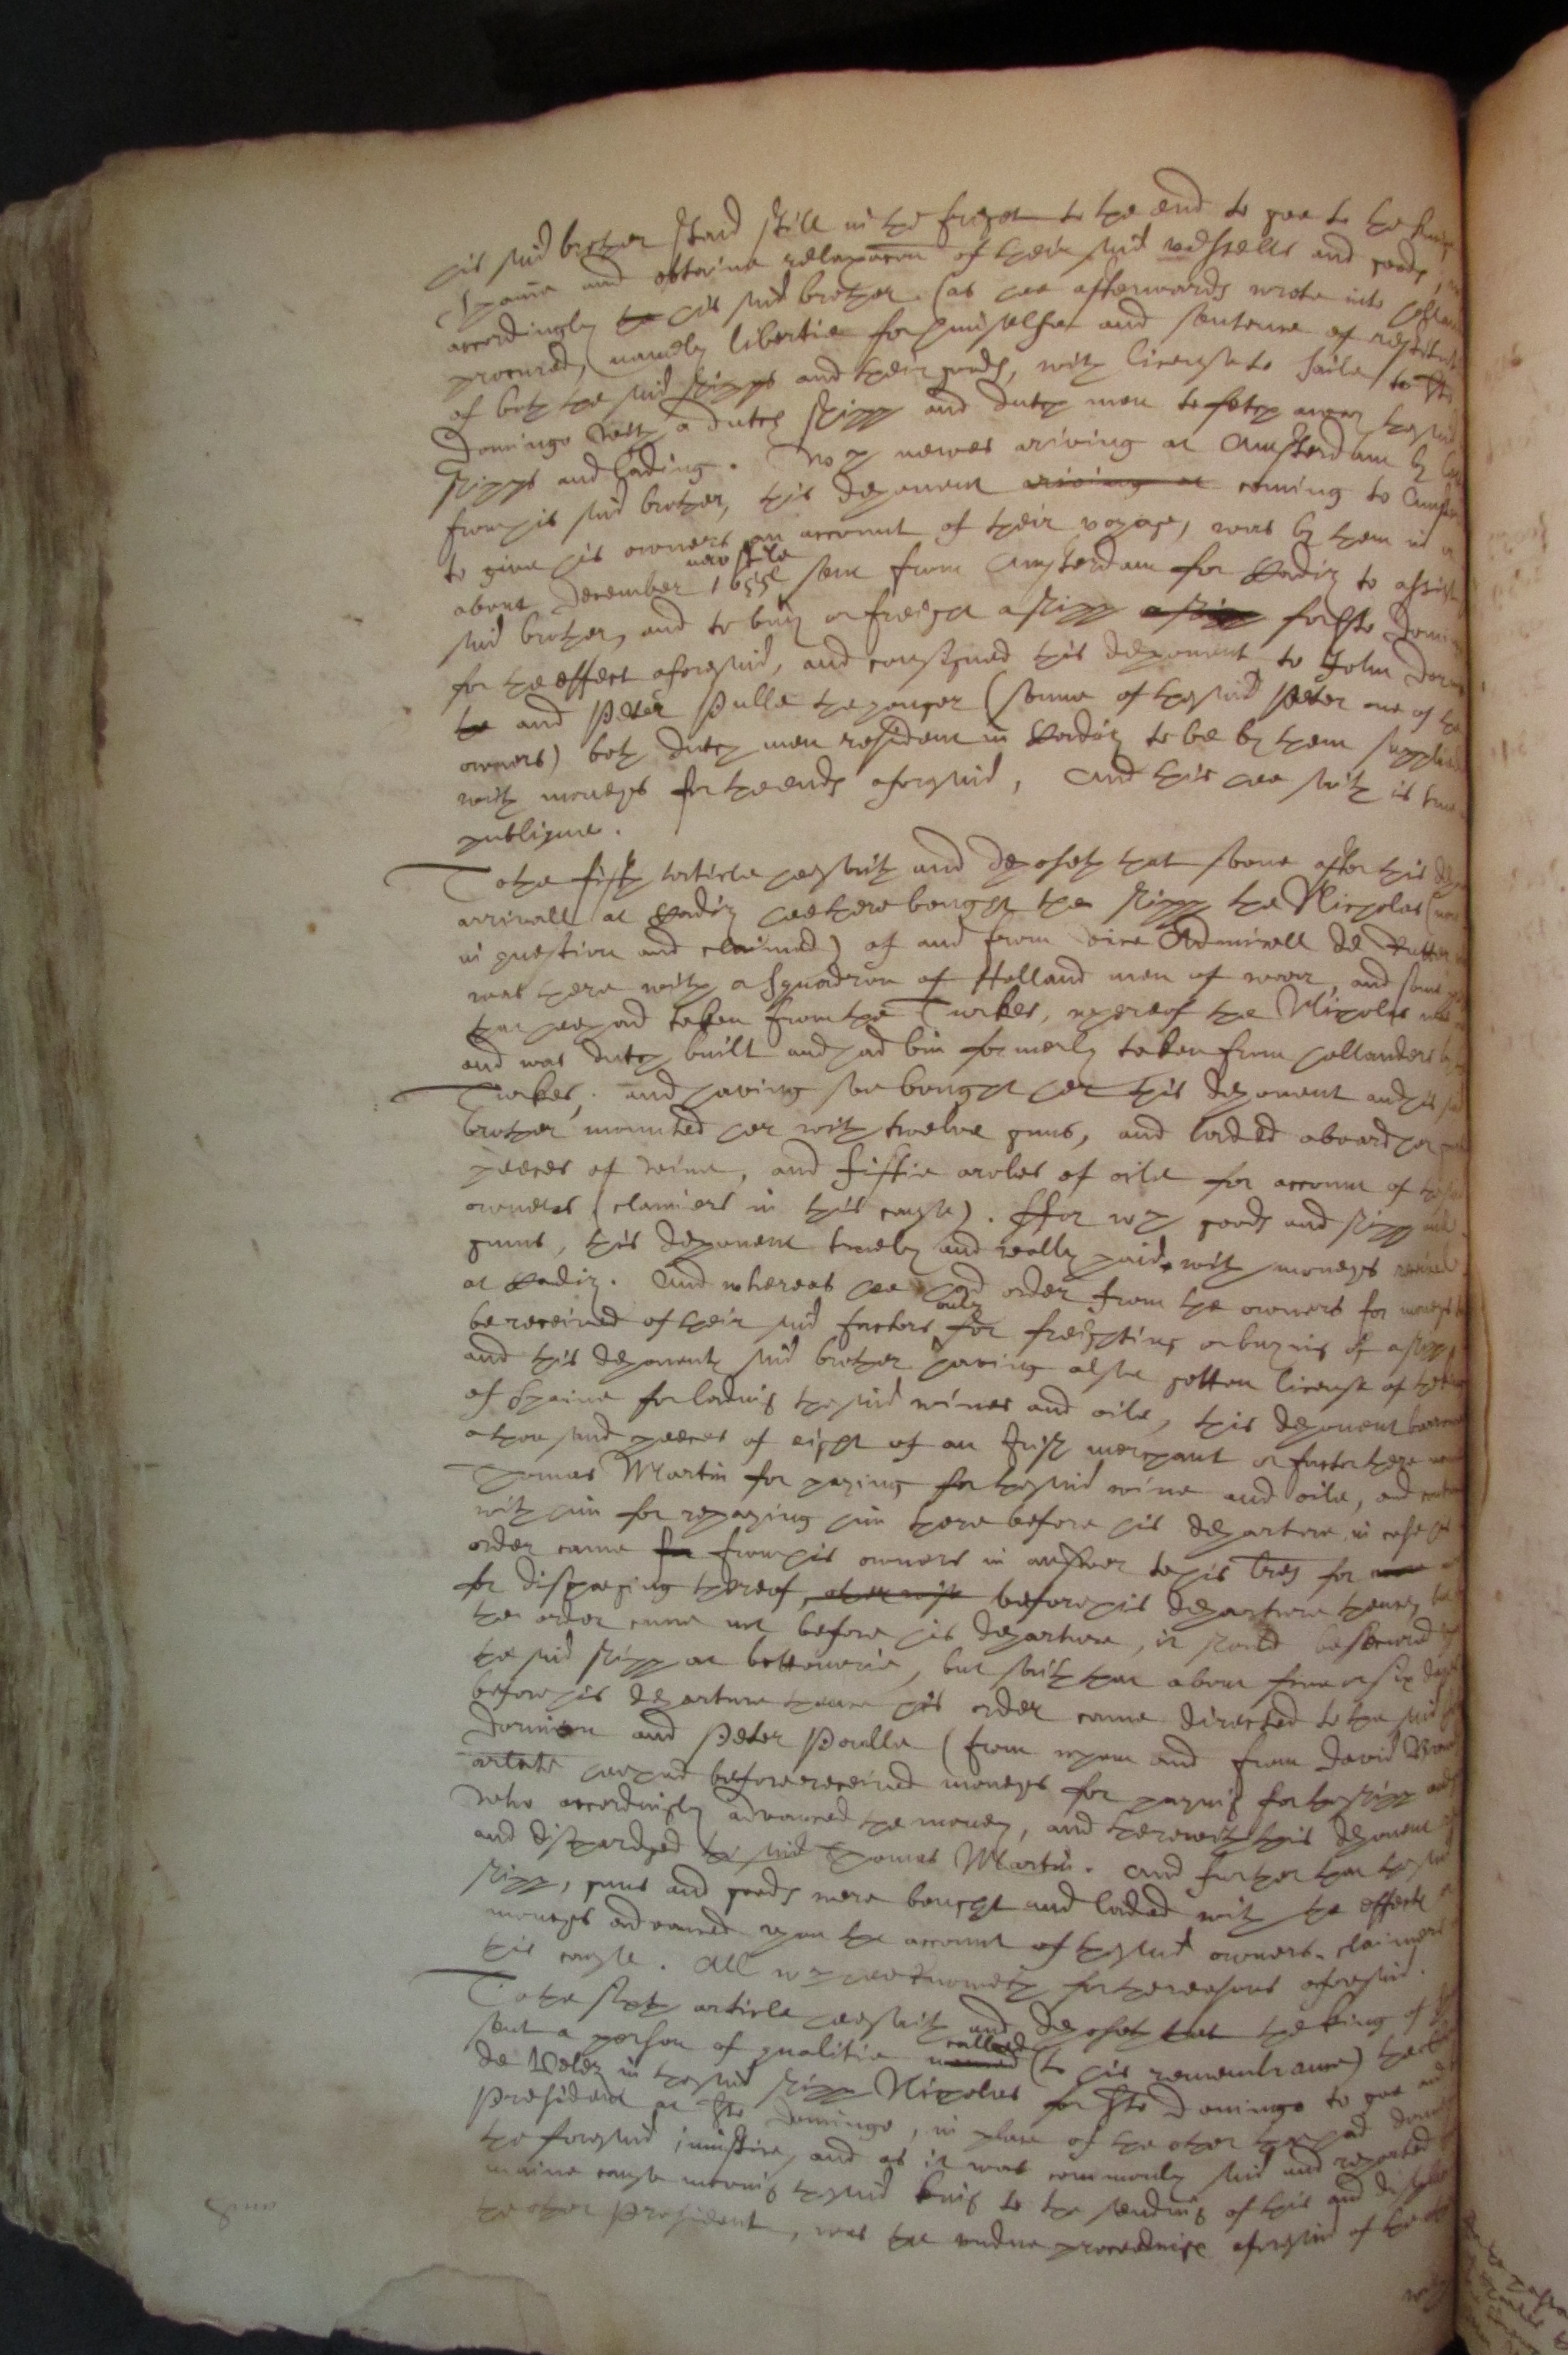 his said brother staid still in the frigot to the end to goe to the
Spaine and obtaine relaxacon of their said vessells and goods,
accordingly his said brother (as hee afterwards wrote into
procured, namely libertie for himselfe and sentence of
of both the said shipps and their goods, with license to saile to Sto
Domingo with a dutch shipp and dutch men to fetch away the said
shipps and lading. Wch newes ariving at Amsterdam by
from his said brother, this deponent ariving at coming to
to give his owners an account of their voyage, was by them in
about December 1655 new stile sent from Amsterdam for Cadiz to assist
said brother, and to buy or freight a shipp a shipp for Sto
for the effect aforesaid, and consigned this deponent to John
the and Peter Pulle the yonger (sonne of the said Peter one of the
owners) both dutch men resident in Cadiz to be by them
with moneys for the ends aforesaid, And this hee saith is
publique.
To the fifth article hee saith and deposeth that soone after this
arrivall at Cadiz hee there bought the shipp the Nicholas
in question and claimed) of and from vice Admirall de
was there with a squadron of Holland men of warr, and
that hee had taken from the Turkes, whereof the Nicholas
and was dutch built and had bin formerly taken from hollanders
Turkes, and having soe bought her this deponent and his
brother mounted her with twelve guns, and laded aboard her
peeces of wine, and fiftie aroles of oile for account of
owners (claimers in this cause). Ffor wch goods and shipp
guns, this deponent truely and really paid with moneys
at Cadiz. And whereas hee had order from the owners for moneys
be received of their said factors only for freighting or buying of a shipp
and this deponents said brother having alsoe gotten license of the
of Spaine for lading the said wines and oile, this deponent
a thousand peeces of eight of an Irish merchant or factor there
Thomas Martin for paying for the said wine and oile, and
with him for repaying him there before his departure, in case
order came for from his owners in answer to his lres for
for discharging thereof, otherwise before his departure thence,
the order came not before his departure, it should be secured
the said shipp at bottomerie, but saith that about five or six
before his departure thence his order came directed to the said
and Peter Poulle (from whom and from David
arlate hee had before received moneys for paying for the shipp
who accordingly advanced the money, and therewith this deponent
and discharged the said Thomas Martin. And further that the said
shipp, guns and goods were bought and laded with the effects
moneys advanced upon the account of the said owners claimers
this cause. All wch hee knoweth for the reasons aforesaid.
To the sixth article hee saith and deposeth that the king of
sent a person of qualitie named called (to his remembrance)
de Velez in the said shipp Nicholas for Sto Domingo to goe and
President at Sto Domingo, in place of the other that had
the foresaid iniustice, and as it was commonly said and reported
maine cause moving the said king to the sending of this and
the other President, was the undue proceedings aforesaid of the